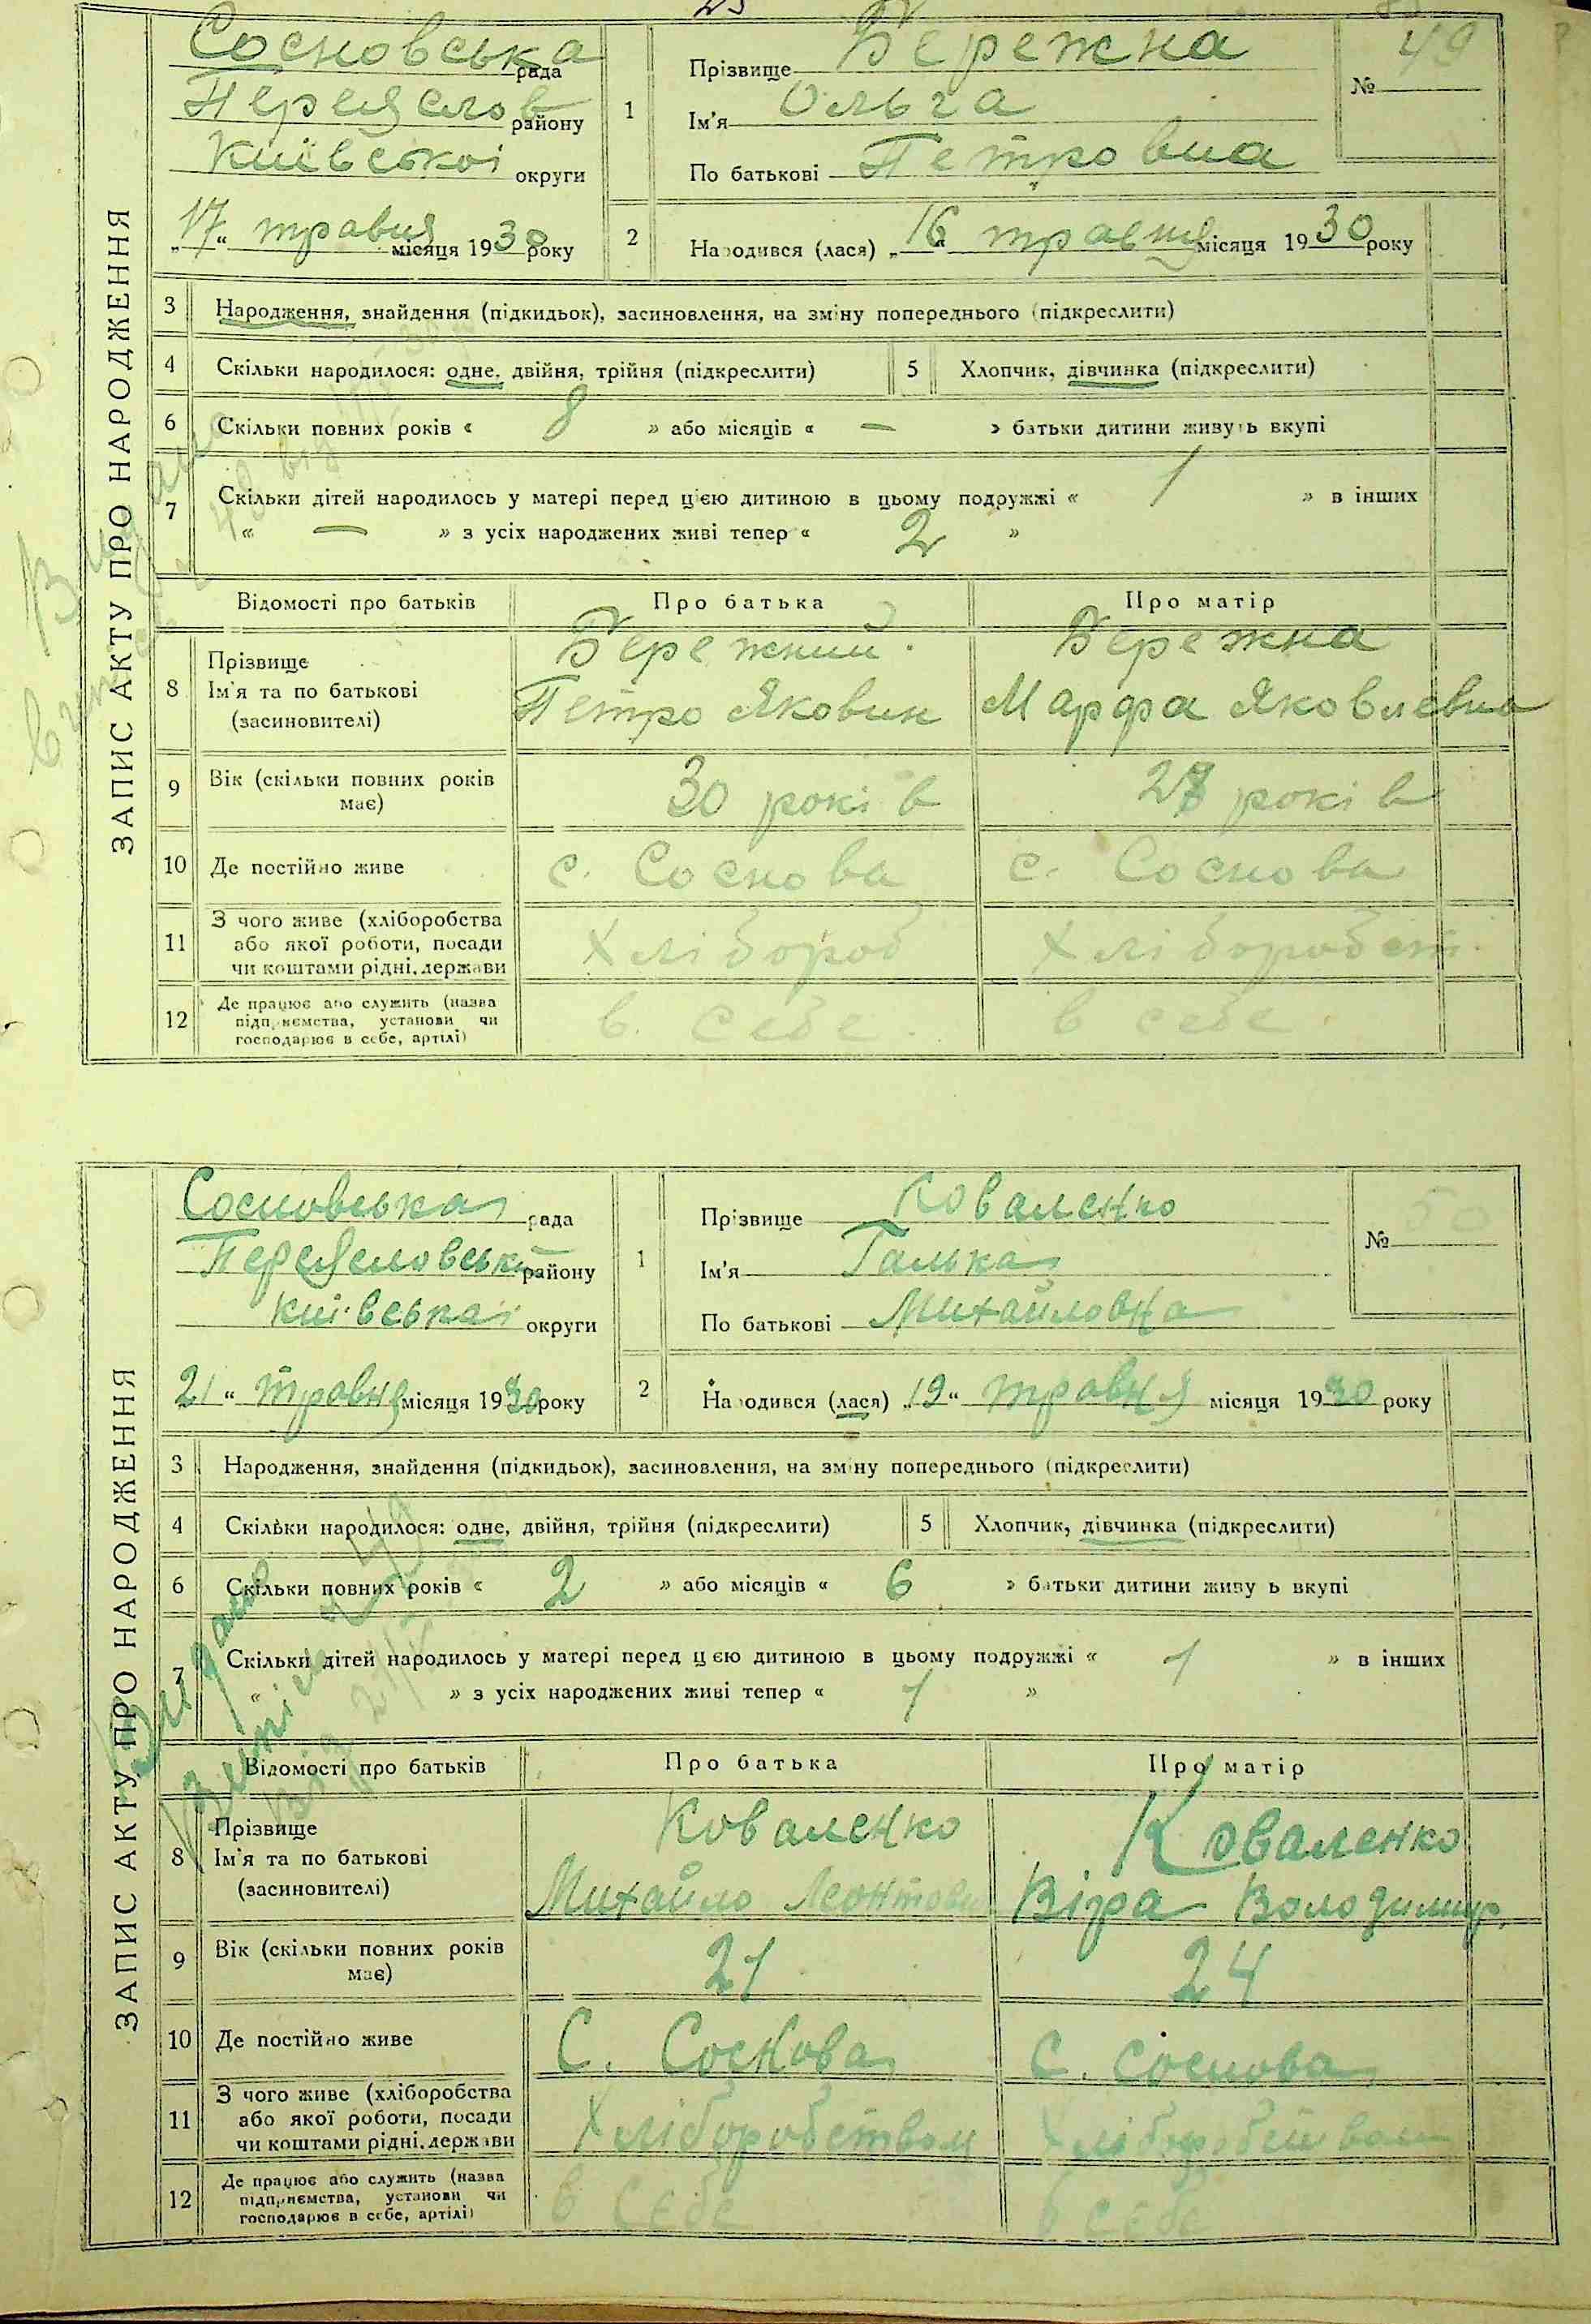 Сосновська рада
Переяслов району
Київської округи
„17“ травня місяця 1930 року
1
Прізвище Бережна
Ім'я Ольга
По батькові Петровна
№ 49
2
Народився (лася) „16“ травня місяця 1930 року
ЗАПИС АКТУ ПРО НАРОДЖЕННЯ
3 Народження, знайдення (підкидьок), засиновлення, на зміну попереднього (підкреслити)
4 Скільки народилося: одне, двійня, трійня (підкреслити) 5 Хлопчик, дівчинка (підкреслити)
6 Скільки повних років « 8 » або місяців « — » батьки дитини живуть вкупі
7 Скільки дітей народилось у матері перед цією дитиною в цьому подружжі « 1 » в інших
« — » з усіх народжених живі тепер « 2 »
Відомості про батьків Про батька Про матір
8 Прізвище Ім'я та по батькові (засиновителі)
Бережний Бережна
Петро Якович Марфа Яковлевна
9 Вік (скільки повних років має) 30 років 27 років
10 Де постійно живе с. Соснова с. Соснова
11 З чого живе (хліборобства або якої роботи, посади чи коштами рідні, держави Хлібороб Хліборобст.
12 Де працює або служить (назва підприємства, установи чи господарює в себе, артілі) в себе. в себе.
Сосновська рада
Переяславськ району
Київська округи
21“ травня місяця 1930 року
1
Прізвище Коваленко
Ім'я Галька
По батькові Михайловна
№ 50
2
Народився (лася) „19“ травня місяця 1930 року
ЗАПИС АКТУ ПРО НАРОДЖЕННЯ
3 Народження, знайдення (підкидьок), засиновлення, на зміну попереднього (підкреслити)
4 Скільки народилося: одне, двійня, трійня (підкреслити) 5 Хлопчик, дівчинка (підкреслити)
6 Скільки повних років « 2 » або місяців « 6 » батьки дитини живуть вкупі
7 Скільки дітей народилось у матері перед цією дитиною в цьому подружжі « 1 » в інших
« » з усіх народжених живі тепер « 1 »
Відомості про батьків Про батька Про матір
8 Прізвище Ім'я та по батькові (засиновителі)
Коваленко Коваленко
Михайло Леонтови Віра Володимир.
9 Вік (скільки повних років має) 21 24
10 Де постійно живе С. Соснова С. Соснова
11 З чого живе (хліборобства або якої роботи, посади чи коштами рідні, держави Хліборобством Хліборобством
12 Де працює або служить (назва підприємства, установи чи господарює в себе, артілі) в себе в себе